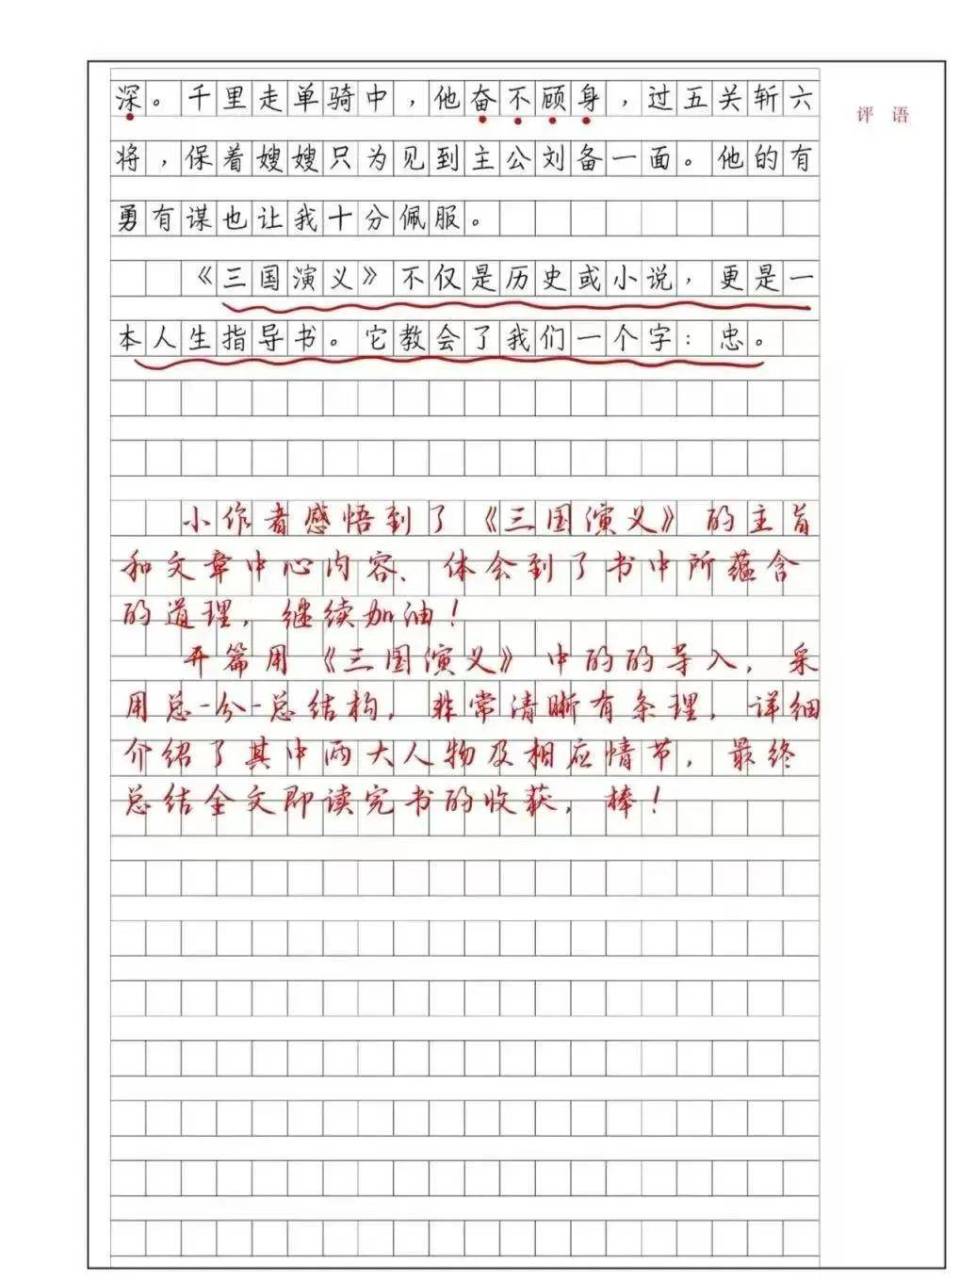 深。千里走单骑中，他奋不顾身，过五关斩六
评语
将，保着嫂嫂只为见到主公刘备一面。他的有
勇有谋也让我十分佩服。
《三国演义》不仅是历史或小说，更是一
本人生指导书。它教会了我们一个字：忠。
小作者感悟到了《三国演义》的主旨
和文章中心内容、体会到了书中所蕴含
的道理，继续加油！
开篇用《三国演义》中的的导入，采
用总-分-总结构，非常清晰有条理，详细
介绍了其中两大人物及相应情节，最终
总结全文即读完书的收获，棒！